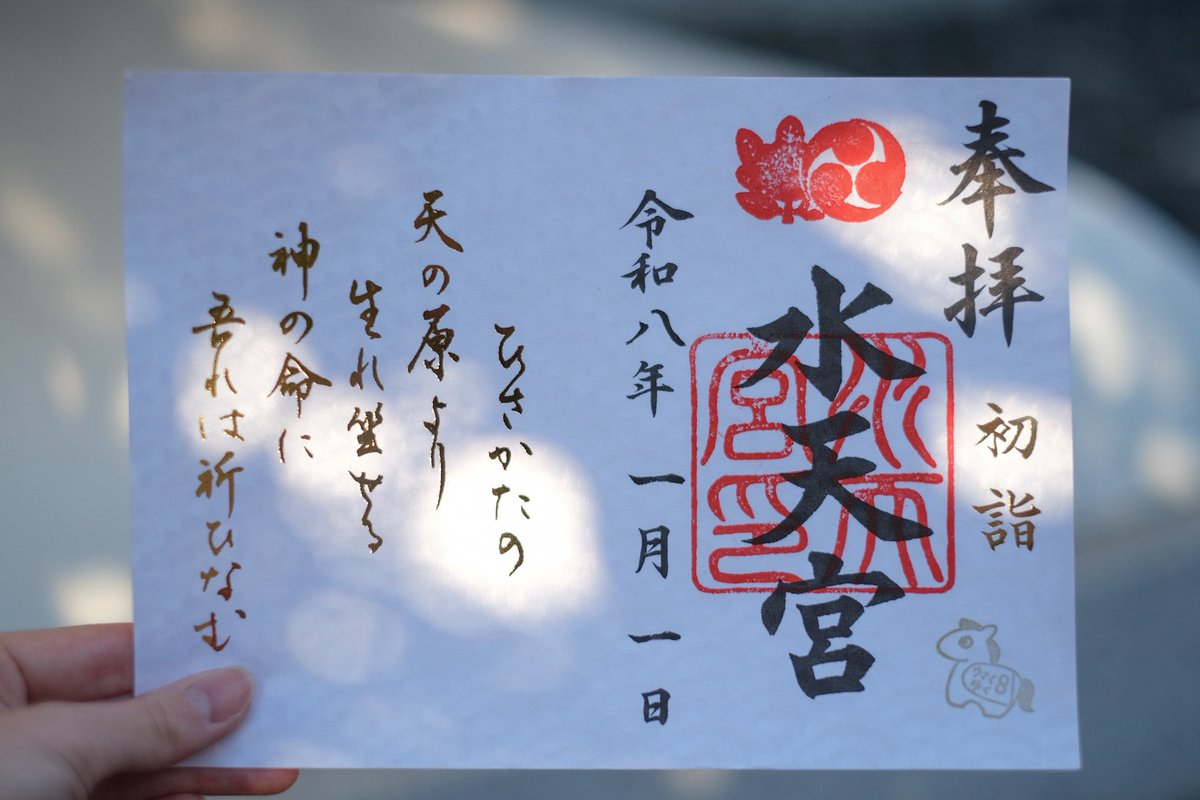 奉拝 初詣
水天宮
水天宮印
令和八年 一月 一日
ひさかたの
天の原より
生れ坐せる
神の命に
吾れは祈ひなむ